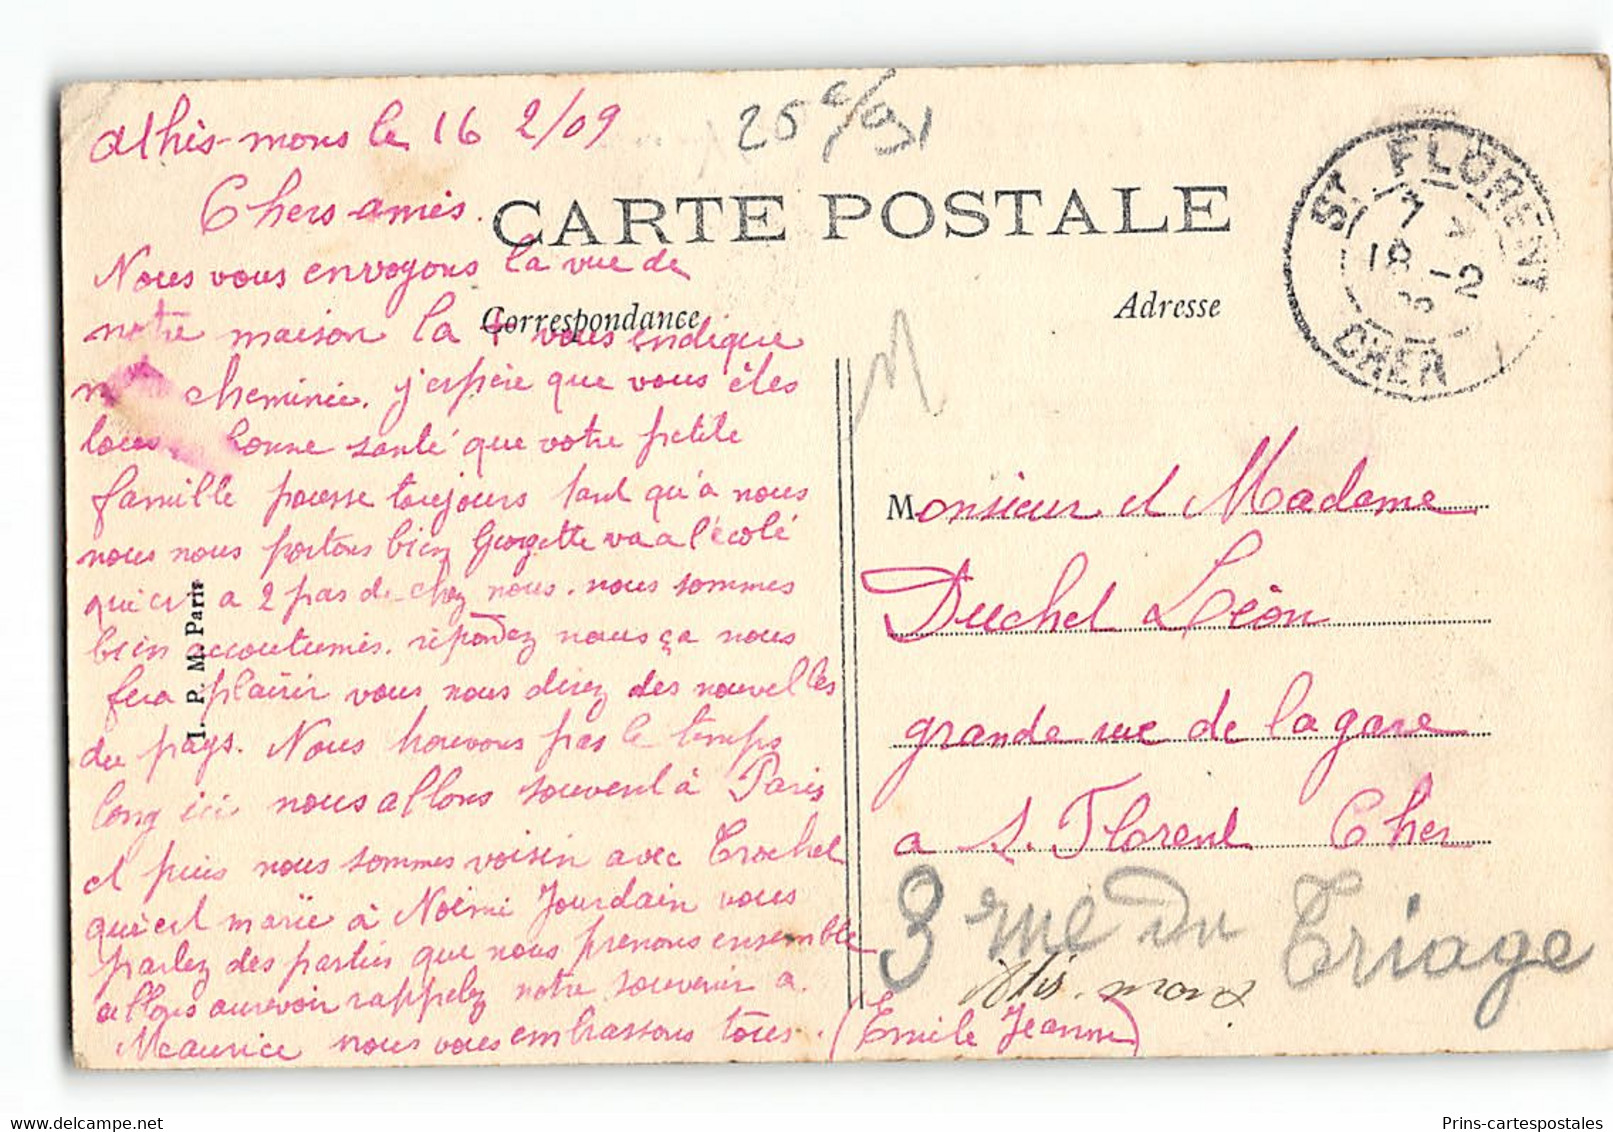 Athis-mons le 16 2/09
Chers amis.
Nous vous envoyons la vue de
notre maison la + vous indique
cheminée. j'espère que vous êtes
tous bonne santé que votre petite
famille pousse toujours tant qu'a nous
nous nous portons bien Georgette va a l'écolé
qui est a 2 pas de chez nous. nous sommes
bien accoutumés. répondez nous ça nous
fera plaisir vous nous direz des nouvelles
du pays. Nous trouvons pas le temps
long ici nous allons souvent à Paris
et puis nous sommes voisin avec Trochet
qui est marie à Noémi Jourdain vous
parlez des parties que nous prenons ensemble
allons aurevoir rappelez notre souvenir a
Maurice nous vous embrassons tous. (Emile Jeanne)
I. P. M. Paris
CARTE POSTALE
Correspondance
Adresse
ST FLORENT
7
18 -2
CHER
M
Monsieur et Madame
Duchet Léon
grande rue de la gare
a S. Florent Cher
3 rue Du Triage
Athis. mons
Prins-cartespostales